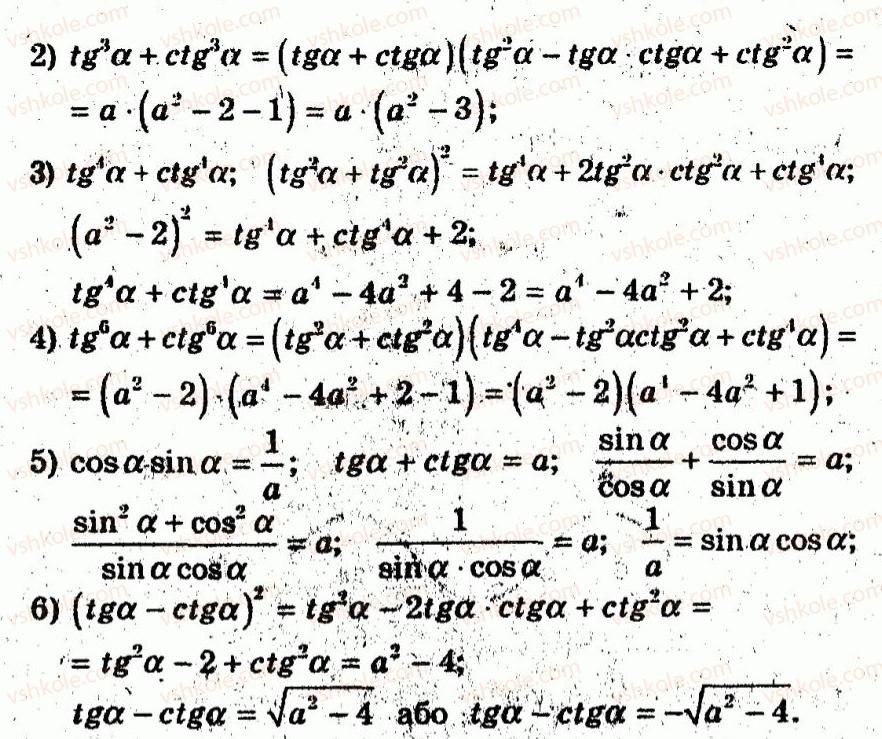 2) tg³α + ctg³α = (tgα + ctgα)(tg²α − tgα · ctgα + ctg²α) =
= a · (a² − 2 − 1) = a · (a² − 3);
3) tg⁴α + ctg⁴α; (tg²α + tg²α)² = tg⁴α + 2tg²α · ctg²α + ctg⁴α;
(a² − 2)² = tg⁴α + ctg⁴α + 2;
tg⁴α + ctg⁴α = a⁴ − 4a² + 4 − 2 = a⁴ − 4a² + 2;
4) tg⁶α + ctg⁶α = (tg²α + ctg²α)(tg⁴α − tg²αctg²α + ctg⁴α) =
= (a² − 2) · (a⁴ − 4a² + 2 − 1) = (a² − 2)(a⁴ − 4a² + 1);
5) cos α · sin α = 1/a; tgα + ctgα = a; sin α/cos α + cos α/sin α = a;
(sin² α + cos² α)/(sin α cos α) = a; 1/(sin α · cos α) = a; 1/a = sin α cos α;
6) (tgα − ctgα)² = tg²α − 2tgα · ctgα + ctg²α =
= tg²α − 2 + ctg²α = a² − 4;
tgα − ctgα = √(a² − 4) або tgα − ctgα = −√(a² − 4).